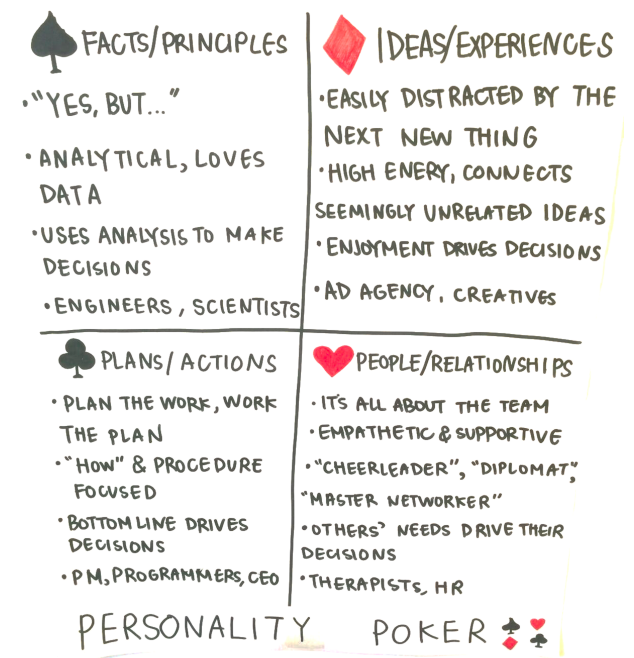 FACTS/PRINCIPLES
• "YES, BUT..."
• ANALYTICAL, LOVES
DATA
• USES ANALYSIS TO MAKE
DECISIONS
• ENGINEERS, SCIENTISTS
IDEAS/EXPERIENCES
• EASILY DISTRACTED BY THE
NEXT NEW THING
• HIGH ENERY, CONNECTS
SEEMINGLY UNRELATED IDEAS
• ENJOYMENT DRIVES DECISIONS
• AD AGENCY, CREATIVES
PLANS/ACTIONS
• PLAN THE WORK, WORK
THE PLAN
• "HOW" & PROCEDURE
FOCUSED
• BOTTOM LINE DRIVES
DECISIONS
• PM, PROGRAMMERS, CEO
PEOPLE/RELATIONSHIPS
• IT'S ALL ABOUT THE TEAM
• EMPATHETIC & SUPPORTIVE
• "CHEERLEADER", "DIPLOMAT",
"MASTER NETWORKER"
• OTHERS' NEEDS DRIVE THEIR
DECISIONS
• THERAPISTS, HR
PERSONALITY POKER